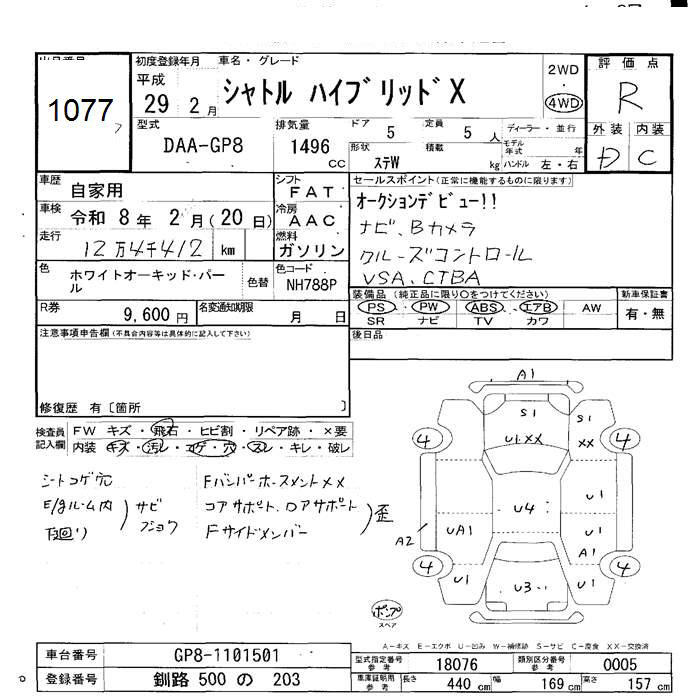 出品番号
1077
初度登録年月
平成
29 2月
車名・グレード
シャトル ハイブリッド X
2WD
4WD
評価点
R
外装 内装
D C
型式
DAA-GP8
排気量
1496 CC
ドア 5
定員 5 人
形状 ステW
積載 kg
ディーラー・並行
モデル年式 年
ハンドル 左・右
車歴
自家用
シフト
FAT
車検
令和 8年 2月(20日)
冷房
AAC
走行
12万4千412 km
燃料
ガソリン
セールスポイント(正常に機能するものに限ります)
オークションデビュー!!
ナビ、Bカメラ
クルーズコントロール
VSA、CTBA
色
ホワイトオーキッド・パール
色替
色コード
NH788P
装備品(純正品に限り○をつけてください)
PS・PW・ABS・エアB・AW
SR ナビ TV カワ
新車保証書
有・無
R券
9,600円
名変通知期限
月 日
後日品
注意事項申告欄(不具合内容等は具体的に記入して下さい)
修復歴 有〔箇所 〕
検査員記入欄
FW キズ・飛石・ヒビ割・リペア跡・×要
内装 キズ・汚レ・コゲ・穴・スレ・キレ・破レ
シートコゲ穴
E/gルーム内
下回り
サビ
フショク
Fバンパーホースメント××
コアサポート、ロアサポート
Fサイドメンバー
歪
A1
S1
U1××
S1
××
4
4
U4
UA1
A2
U1
U1
A1
4
4
U1
U3
U1
ポンプ
スペア
A−キズ E−エクボ U−凹み W−補修跡 S−サビ C−腐食 XX−交換済
車台番号
GP8-1101501
型式指定番号 参考
18076
類別区分番号 参考
0005
登録番号
釧路 500 の 203
車庫証明用 参考
長さ 440 cm
幅 169 cm
高さ 157 cm